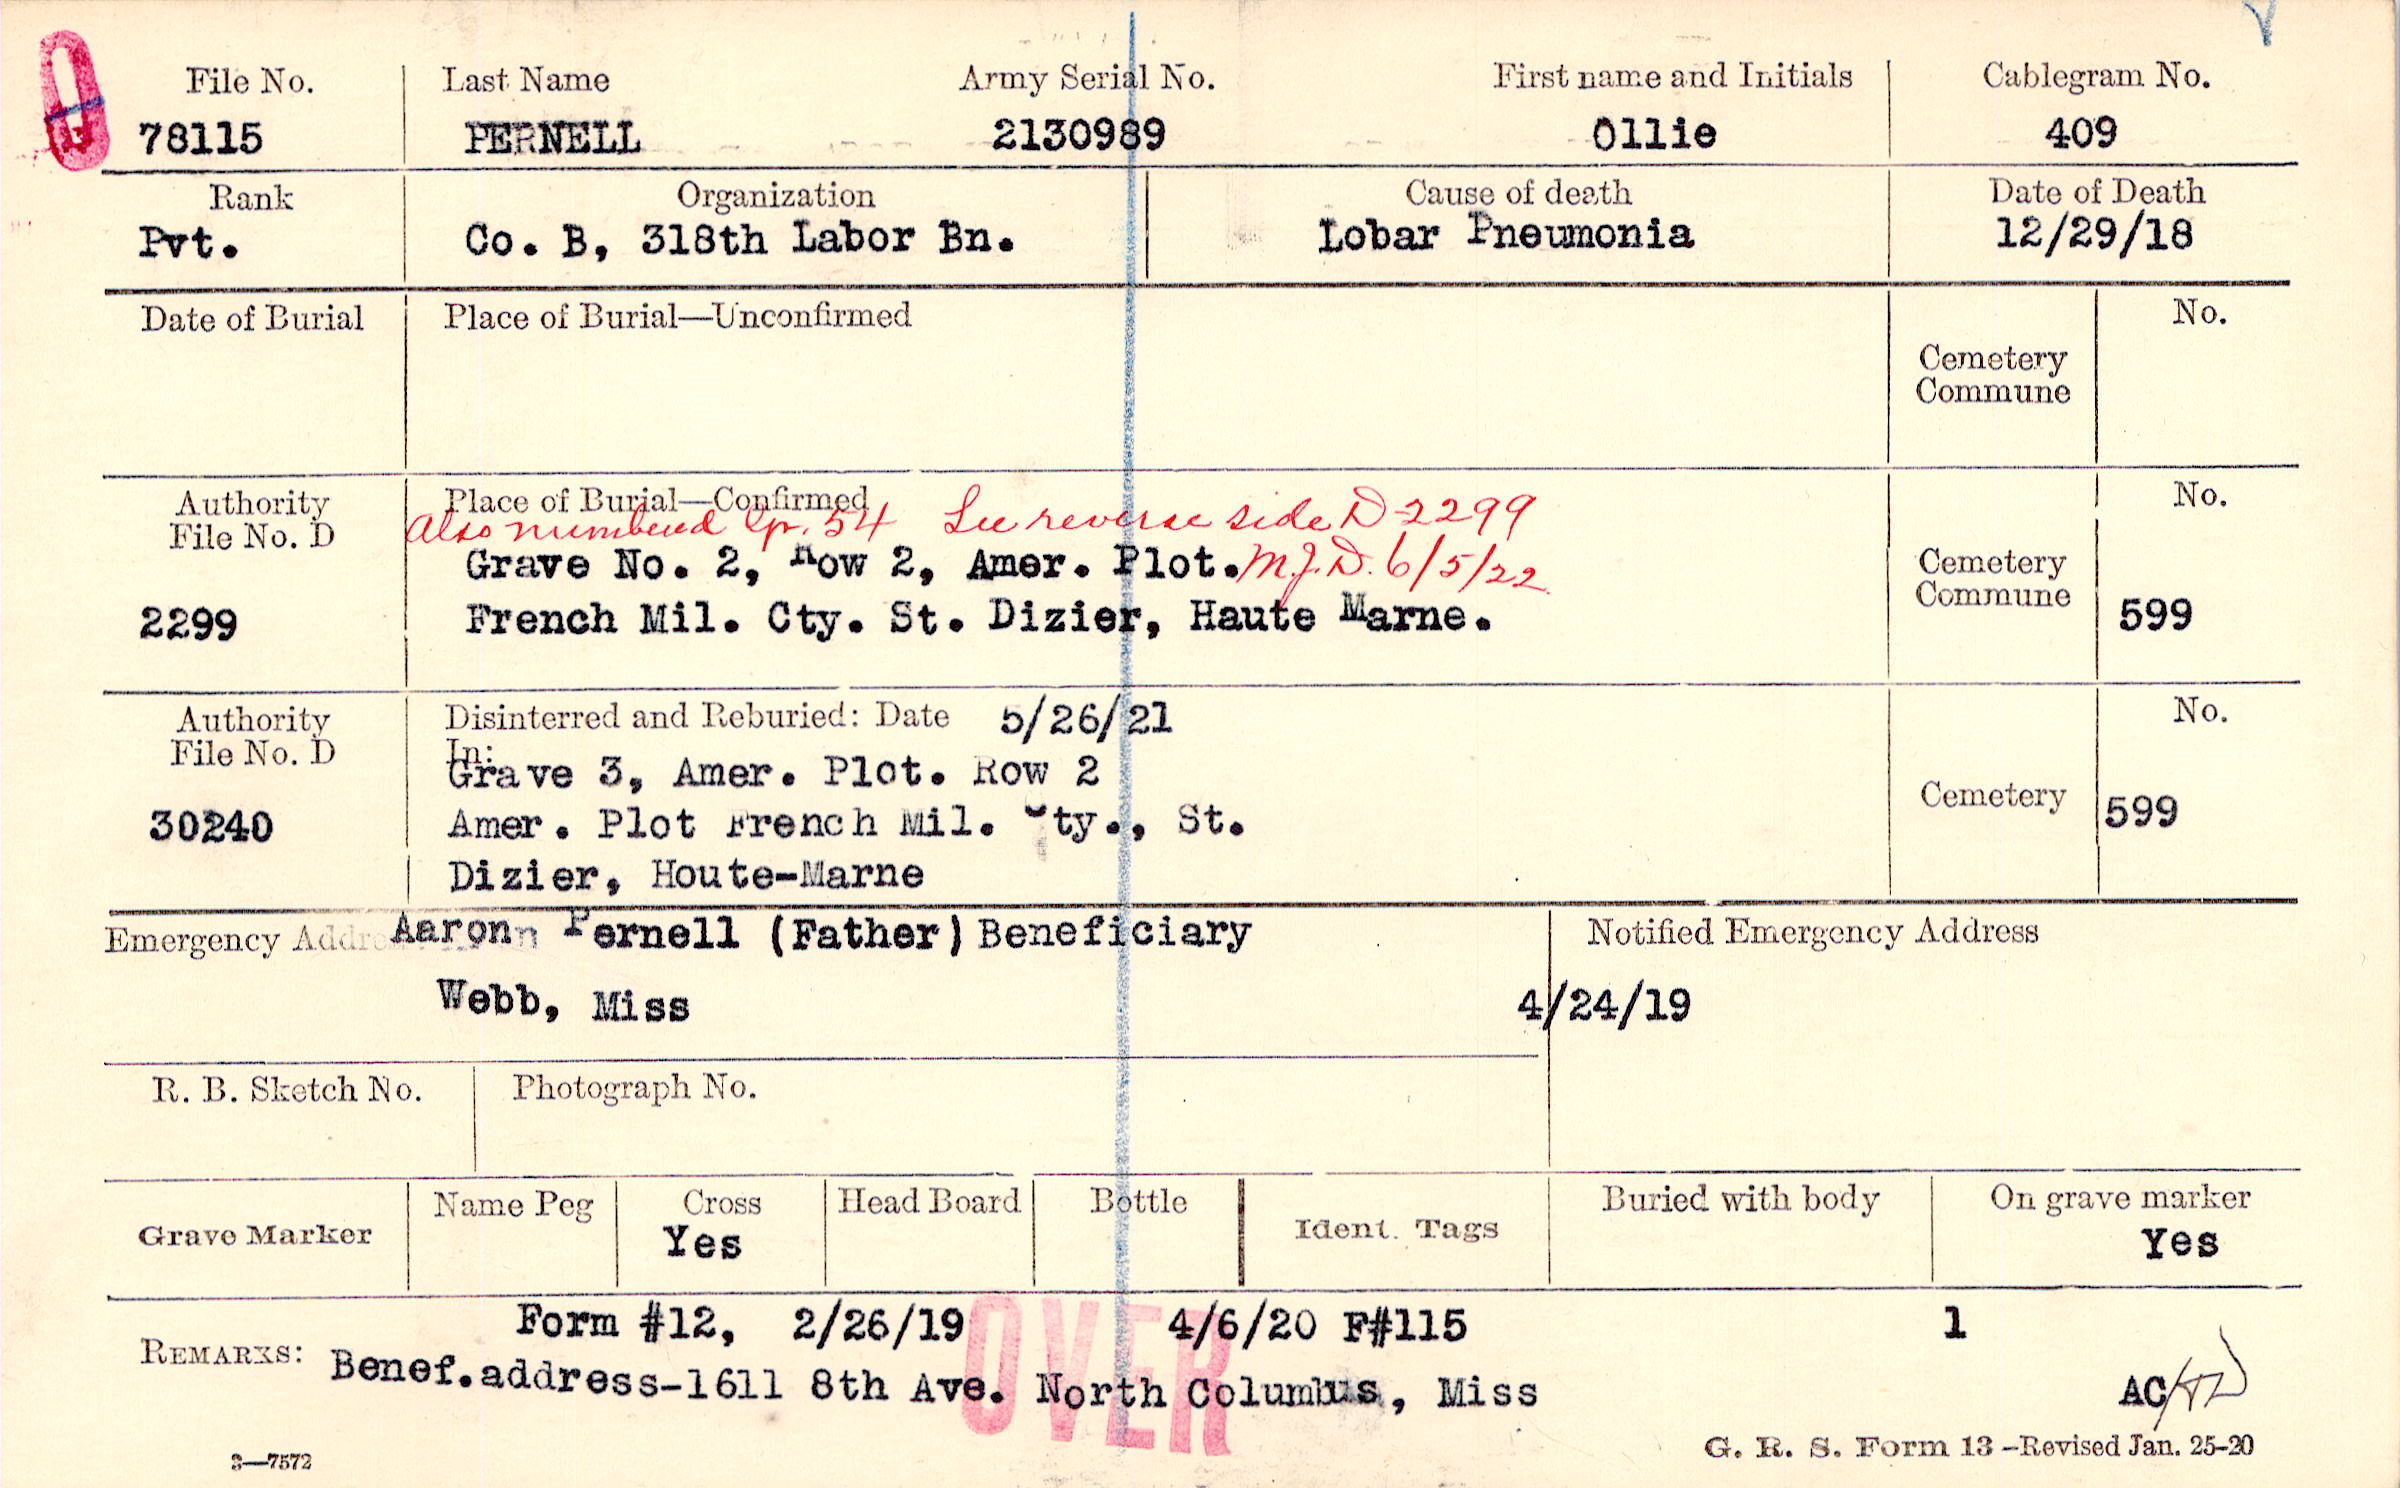 File No. Last Name Army Serial No. First name and Initials Cablegram No.
78115 PERNELL 2130989 Ollie 409
Rank Organization Cause of death Date of Death
Pvt. Co. B, 318th Labor Bn. Lobar Pneumonia 12/29/18
Date of Burial Place of Burial—Unconfirmed No.
Cemetery
Commune
Authority Place of Burial—Confirmed No.
File No. D Also numbered Gr. 54 See reverse side D-2299
Grave No. 2, Row 2, Amer. Plot. M.J.D. 6/5/22 Cemetery
Commune
2299 French Mil. Cty. St. Dizier, Haute Marne. 599
Authority Disinterred and Reburied: Date 5/26/21 No.
File No. D In:
Grave 3, Amer. Plot. Row 2
Cemetery
30240 Amer. Plot French Mil. Cty., St. 599
Dizier, Houte-Marne
Emergency Address Aaron Pernell (Father) Beneficiary Notified Emergency Address
Webb, Miss 4/24/19
R. B. Sketch No. Photograph No.
Name Peg Cross Head Board Bottle Buried with body On grave marker
Grave Marker Yes Ident. Tags Yes
Form #12, 2/26/19 4/6/20 F#115 1
REMARKS: Benef.address-1611 8th Ave. North Columbus, Miss AC/
OVER
3—7572 G. R. S. Form 13 –Revised Jan. 25-20